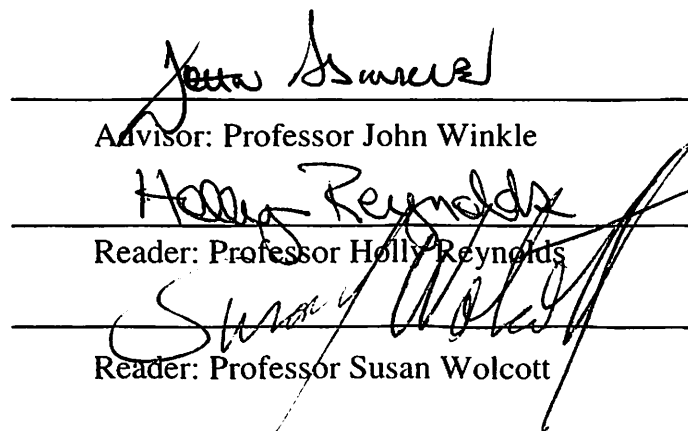 Advisor: Professor John Winkle
Holly Reynolds
Reader: Professor Holly Reynolds
Susan Wolcott
Reader: Professor Susan Wolcott